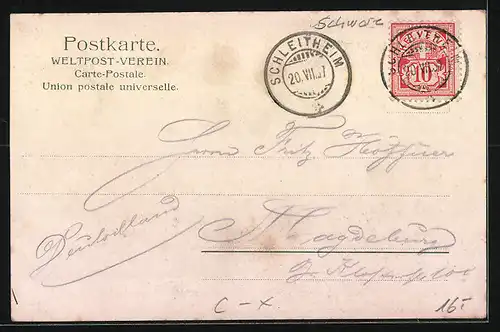 Schwarz
Postkarte.
WELTPOST-VEREIN.
Carte-Postale.
Union postale universelle.
SCHLEITHEIM
20.VII.07
SCHLEITHEIM
20.VII.07
10
Herrn Fritz
Deutschland
Magdeburg
C-x
16.-